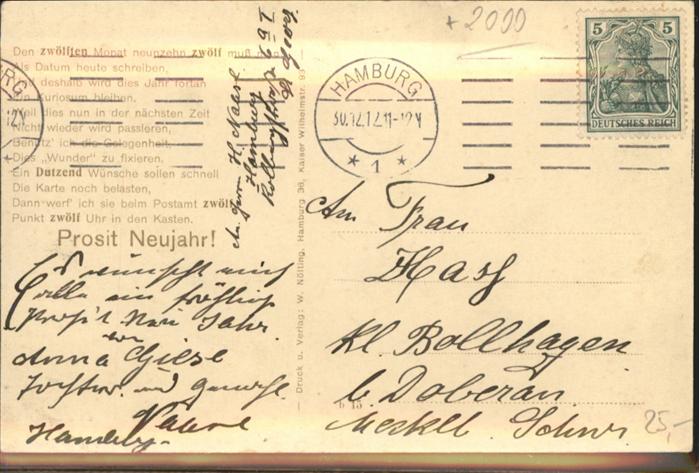 Den zwölften Monat neunzehn zwölf muß
Als Datum heute schreiben,
Und deshalb wird dies Jahr fortan
Ein Kuriosum bleiben.
Weil dies nun in der nächsten Zeit
Nicht wieder wird passieren,
Benütz' ich die Gelegenheit,
Dies „Wunder" zu fixieren.
Ein Dutzend Wünsche sollen schnell
Die Karte noch belasten,
Dann werf' ich sie beim Postamt zwölf
Punkt zwölf Uhr in den Kasten.
Prosit Neujahr!
Es wünscht euch
alle ein fröhlich
Prosit Neu Jahr
Anna Giese
Tochter und
Hamburg.
H. Vaarl
Hamburg
Druck u. Verlag: W. Nölting, Hamburg 36, Kaiser Wilhelmstr. 93
+ 2000
HAMBURG
30.12.12.11-12V
* 1 *
5 5
DEUTSCHES REICH
An Frau
Haß
Kl Bollhagen
b Doberan
Mecklb. Schwr.
25,-